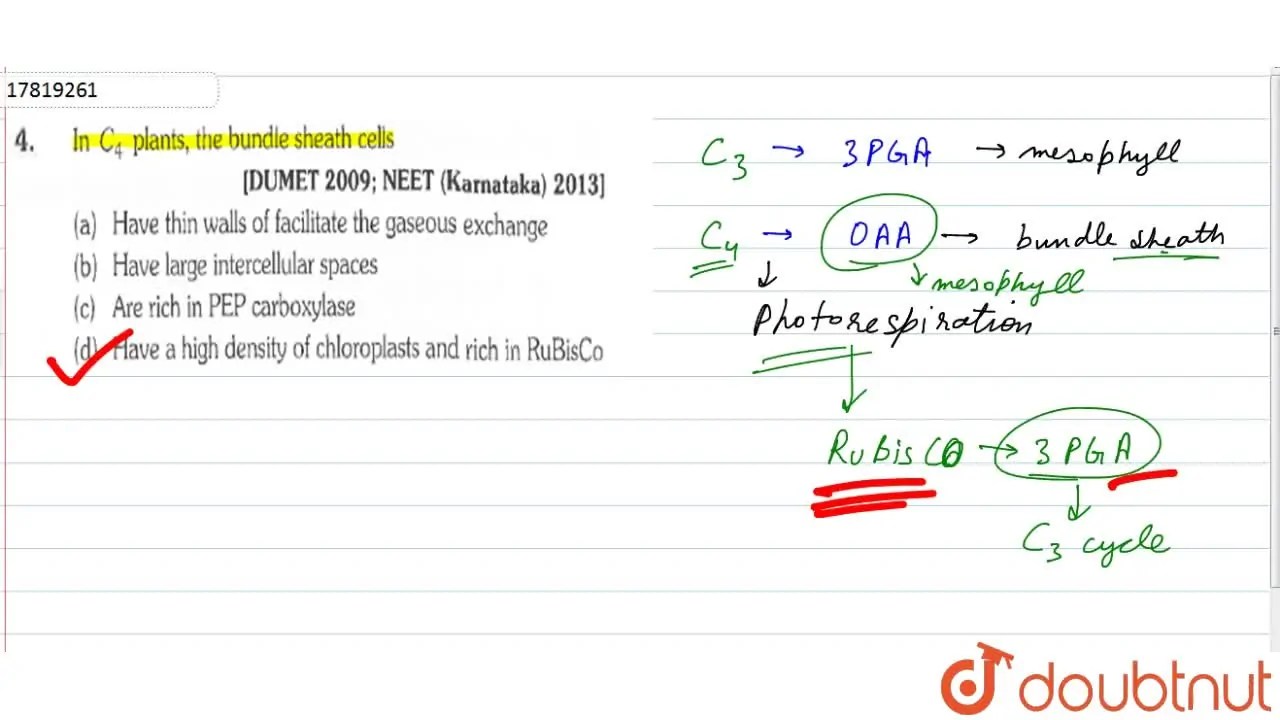 17819261
4. In C₄ plants, the bundle sheath cells
[DUMET 2009; NEET (Karnataka) 2013]
(a) Have thin walls of facilitate the gaseous exchange
(b) Have large intercellular spaces
(c) Are rich in PEP carboxylase
(d) Have a high density of chloroplasts and rich in RuBisCo
C₃ → 3PGA → mesophyll
C₄ → OAA → bundle sheath
↓ ↓ mesophyll
Photorespiration
↓
RuBisCO → 3PGA
↓
C₃ cycle
doubtnut